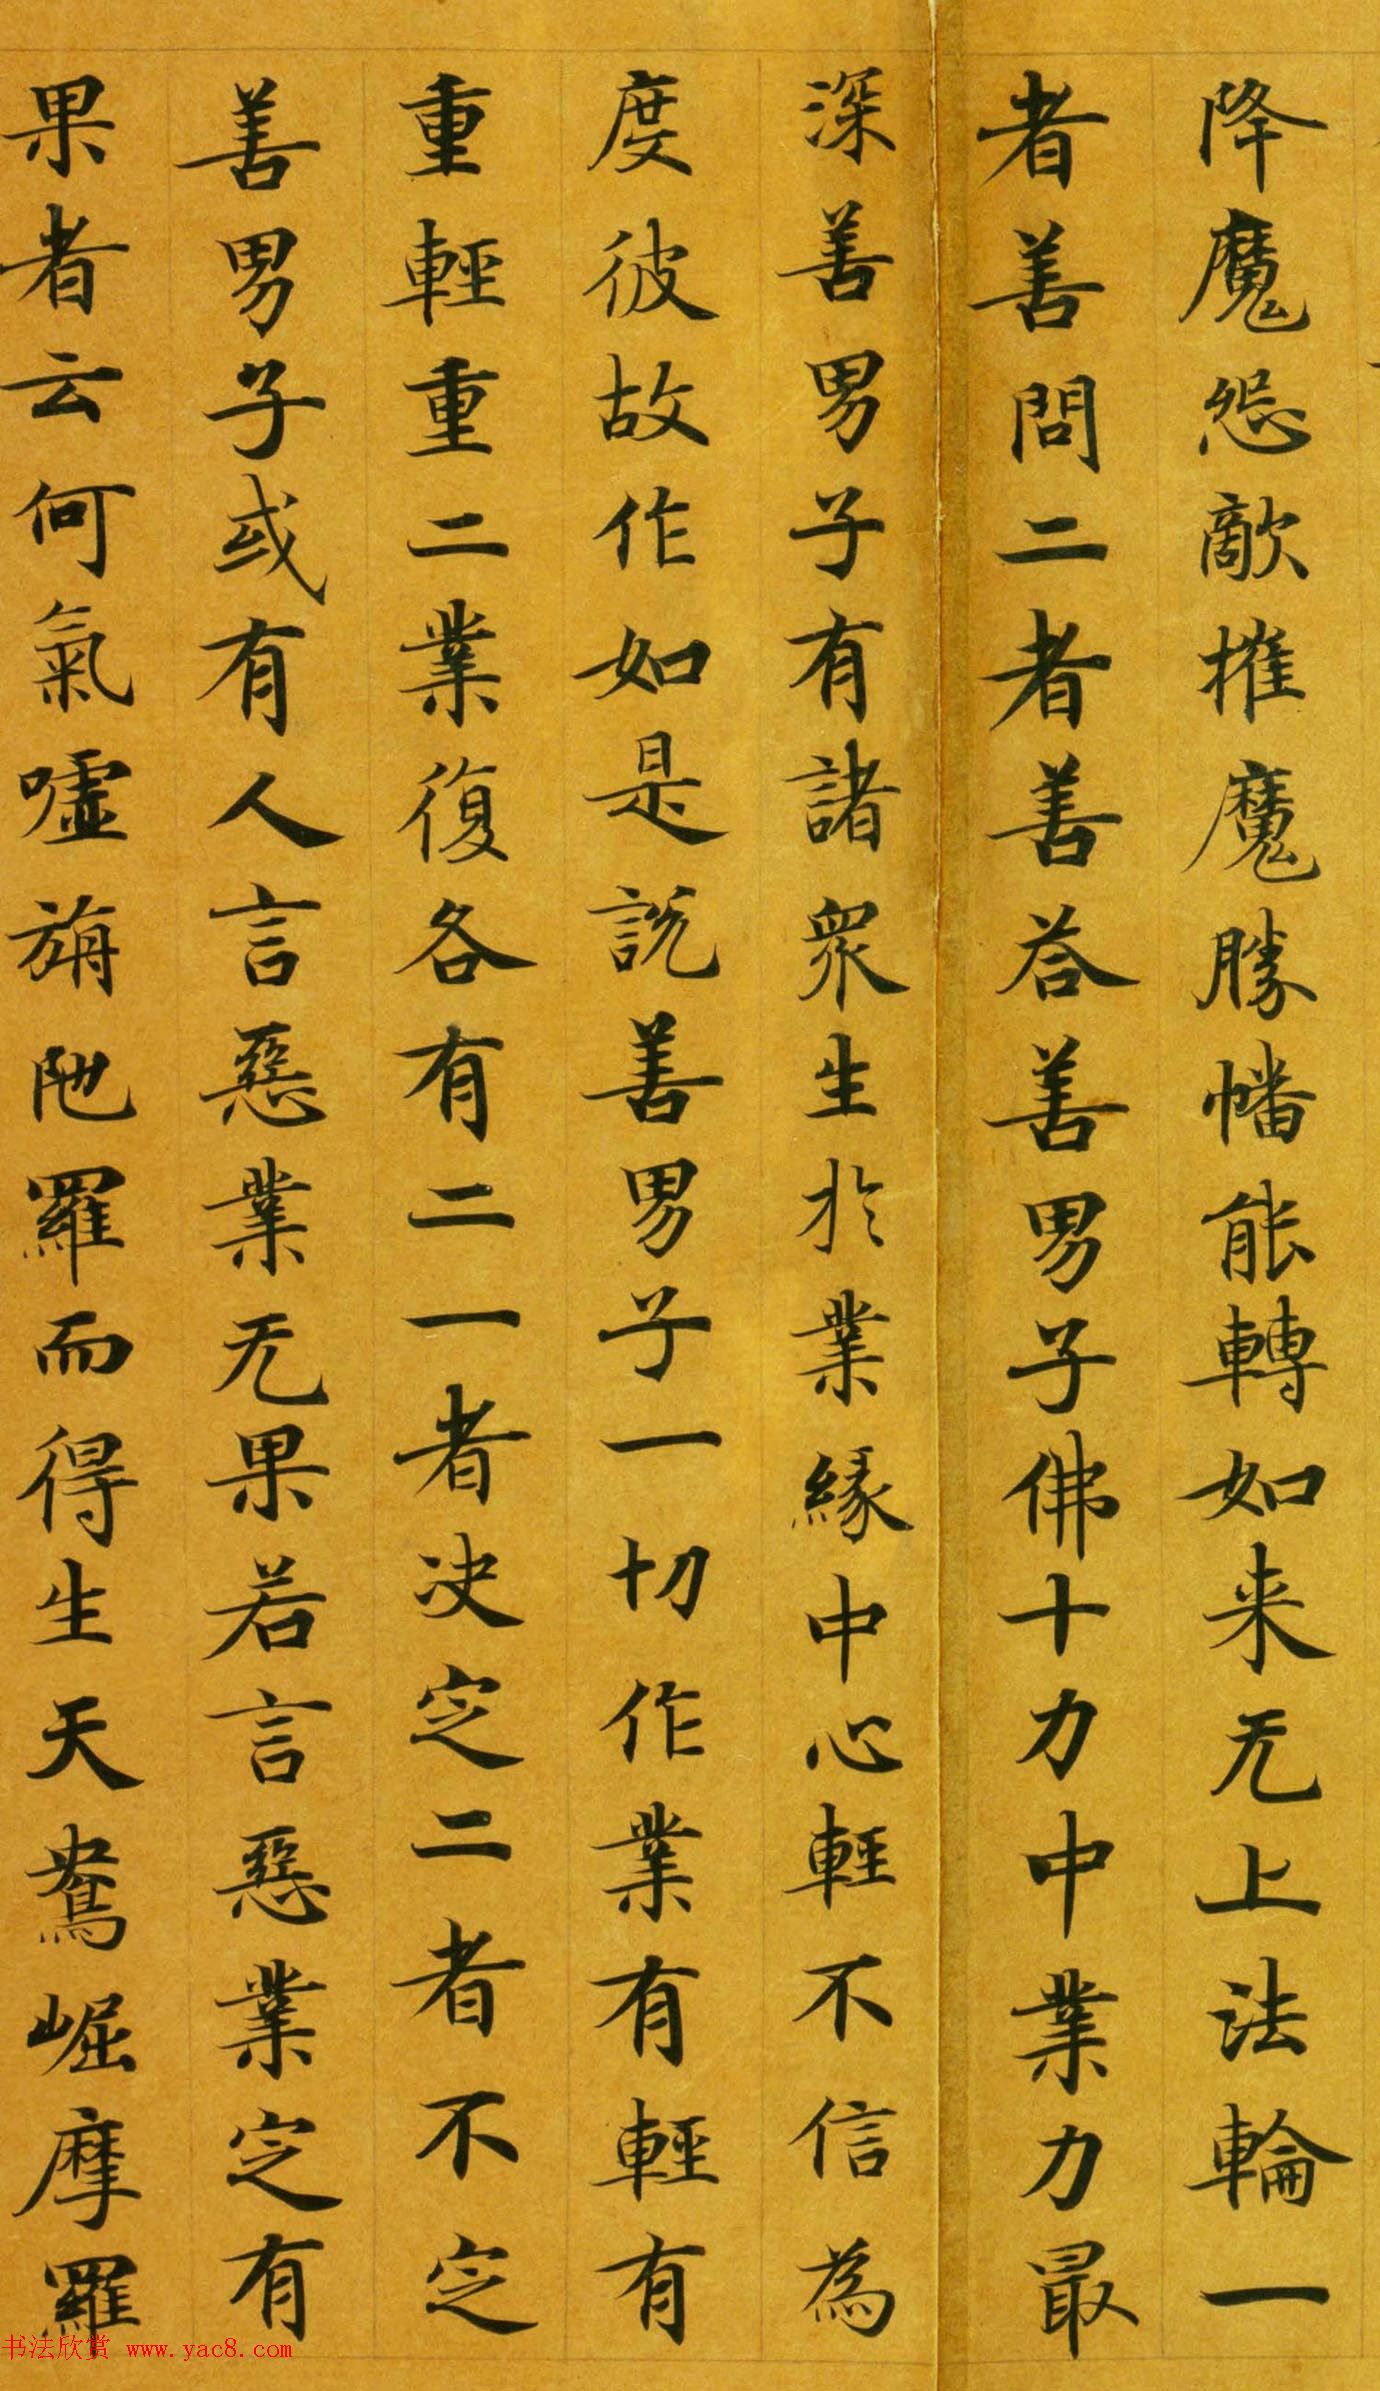 降魔怨敵摧魔勝幡能轉如来无上法輪一
者善問二者善荅善男子佛十力中業力最
深善男子有諸衆生於業緣中心輕不信為
度彼故作如是說善男子一切作業有輕有
重輕重二業復各有二一者决定二者不定
善男子或有人言惡業无果若言惡業定有
果者云何氣嘘旃陁羅而得生天鴦崛摩羅
书法欣赏 www.yac8.com